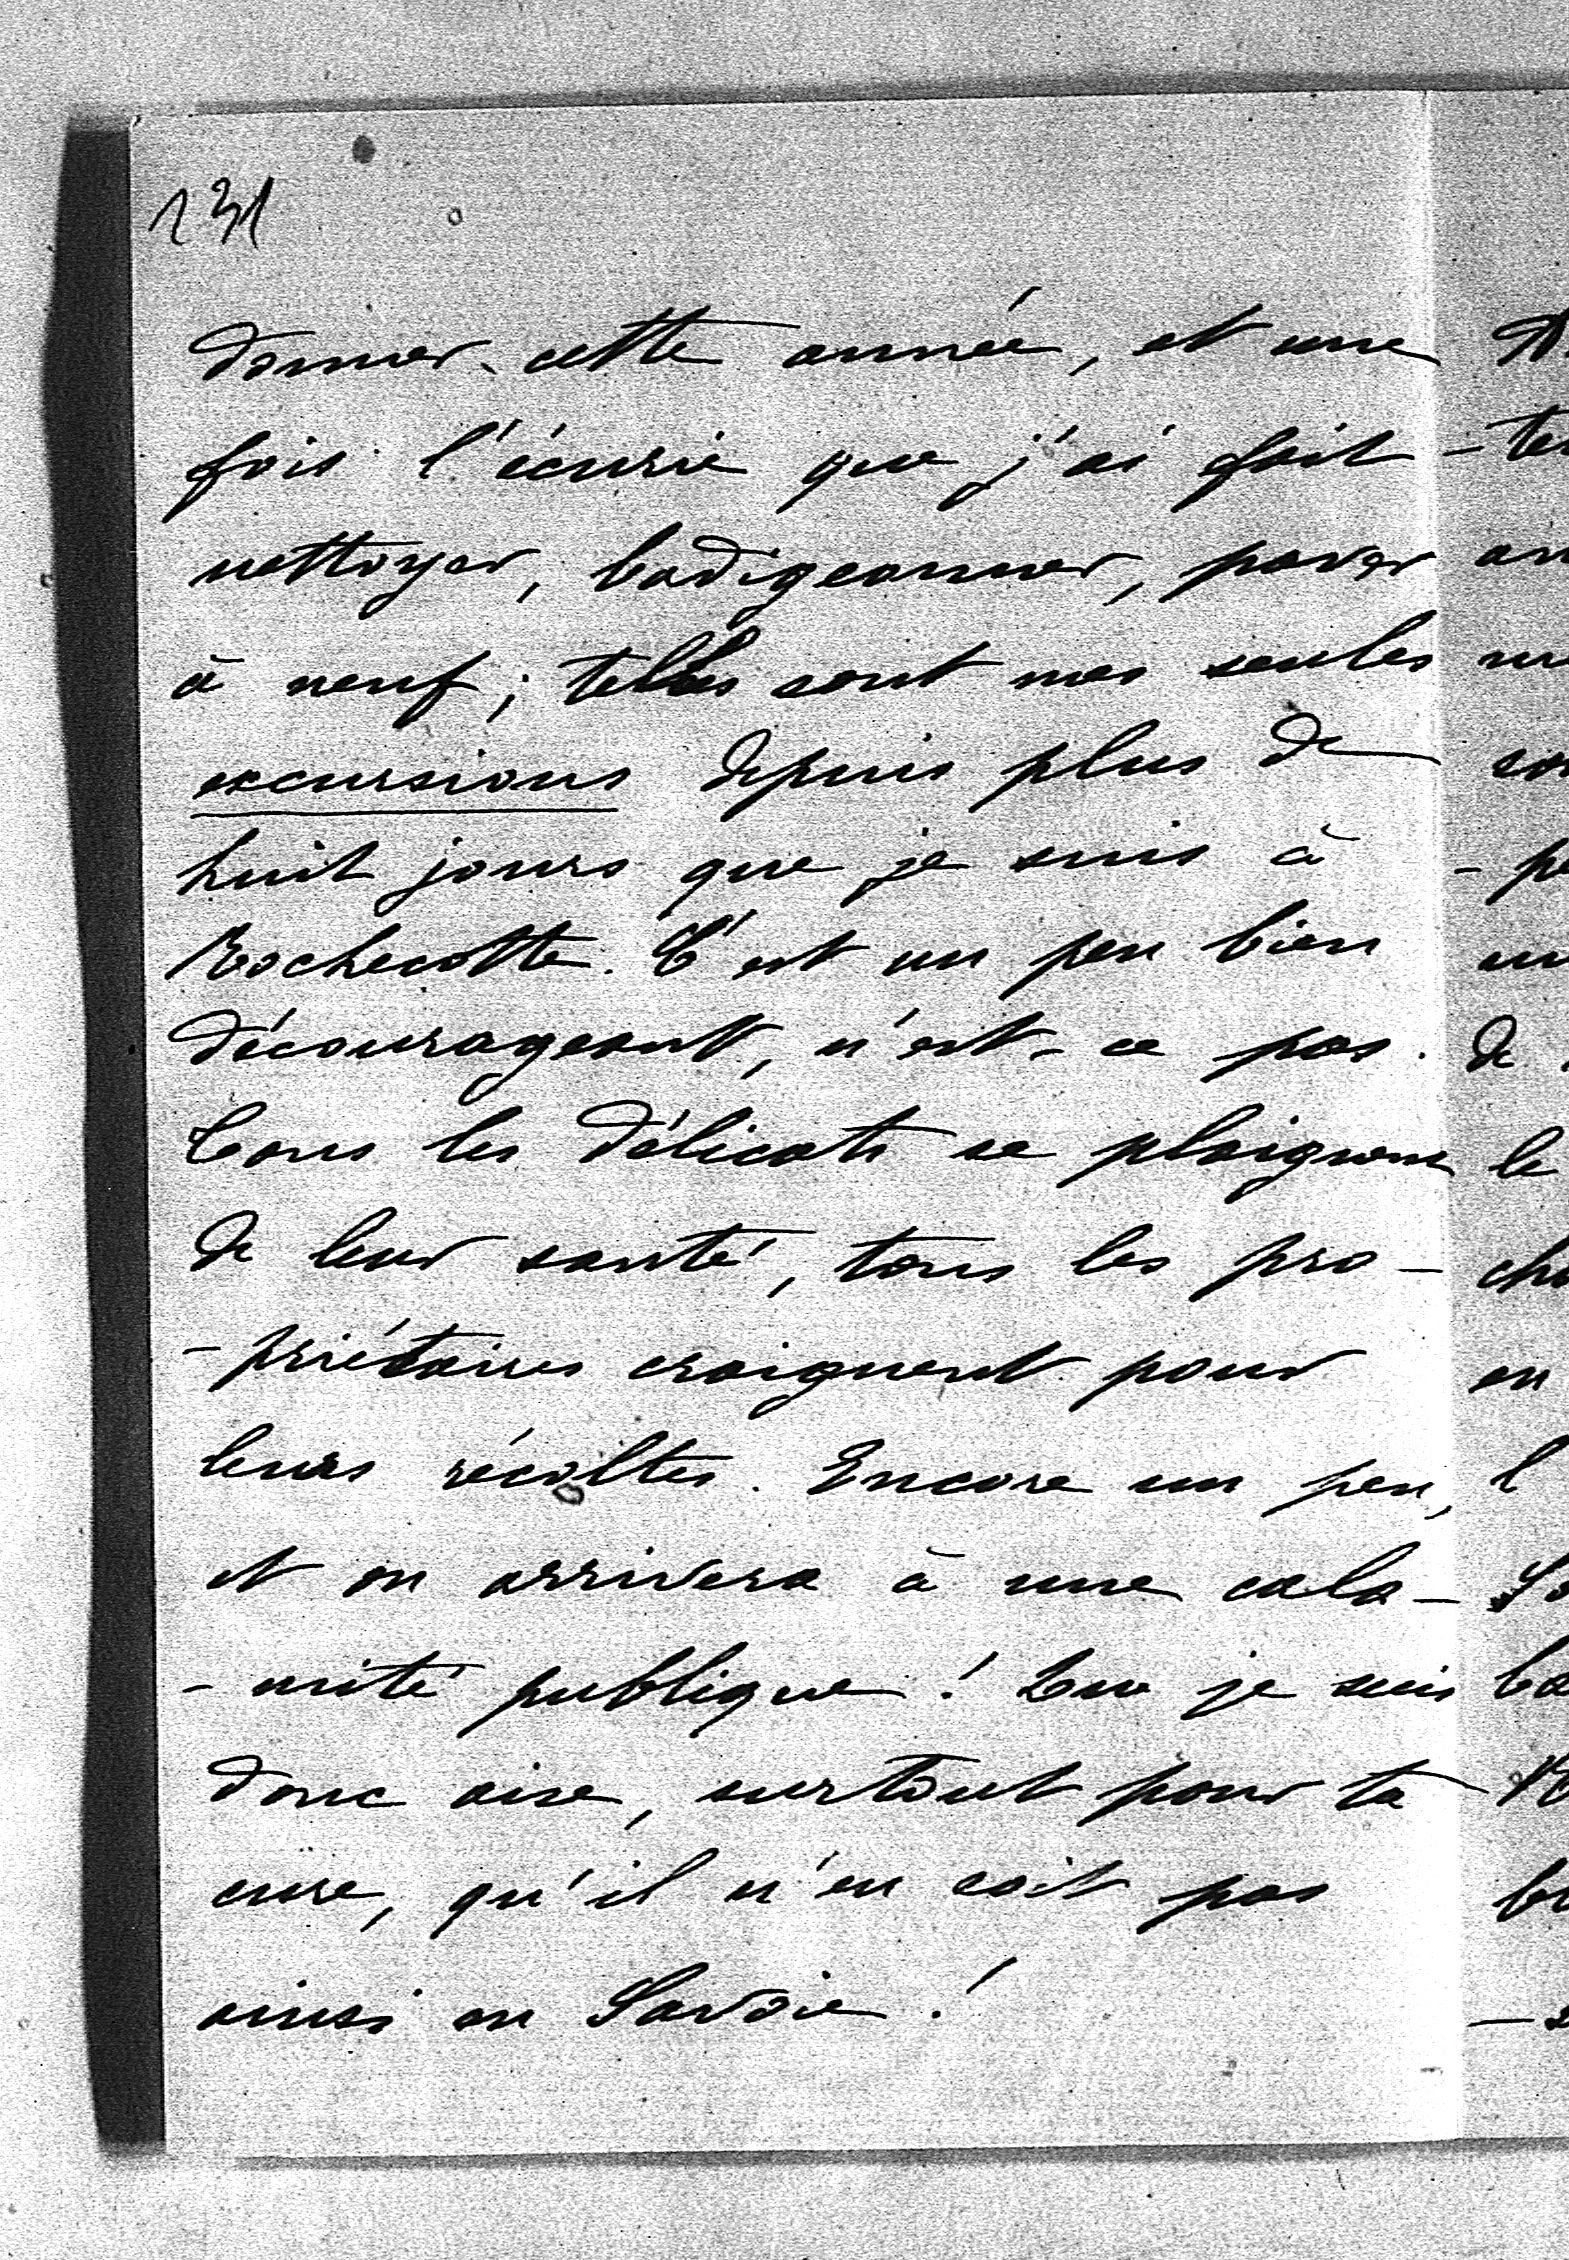 131
donner cette année, et une
fois l'écurie que j'ai fait
nettoyer, badigeonner, paver
à neuf ; telles sont mes seules
excursions depuis plus de
huit jours que je suis à
Rochecotte. C'est un peu bien
décourageant, n'est-ce pas.
Tous les délicats se plaignent
de leur santé, tous les pro-
-priétaires craignent pour
leurs récoltes. Encore un peu,
et on arrivera à une cala-
-mité publique ! Que je suis
donc aise, surtout pour ta
cure, qu'il n'en soit pas
ainsi en Savoie !